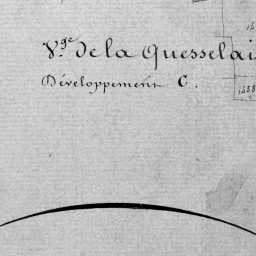 Vge de la Quesselai
Développement C.